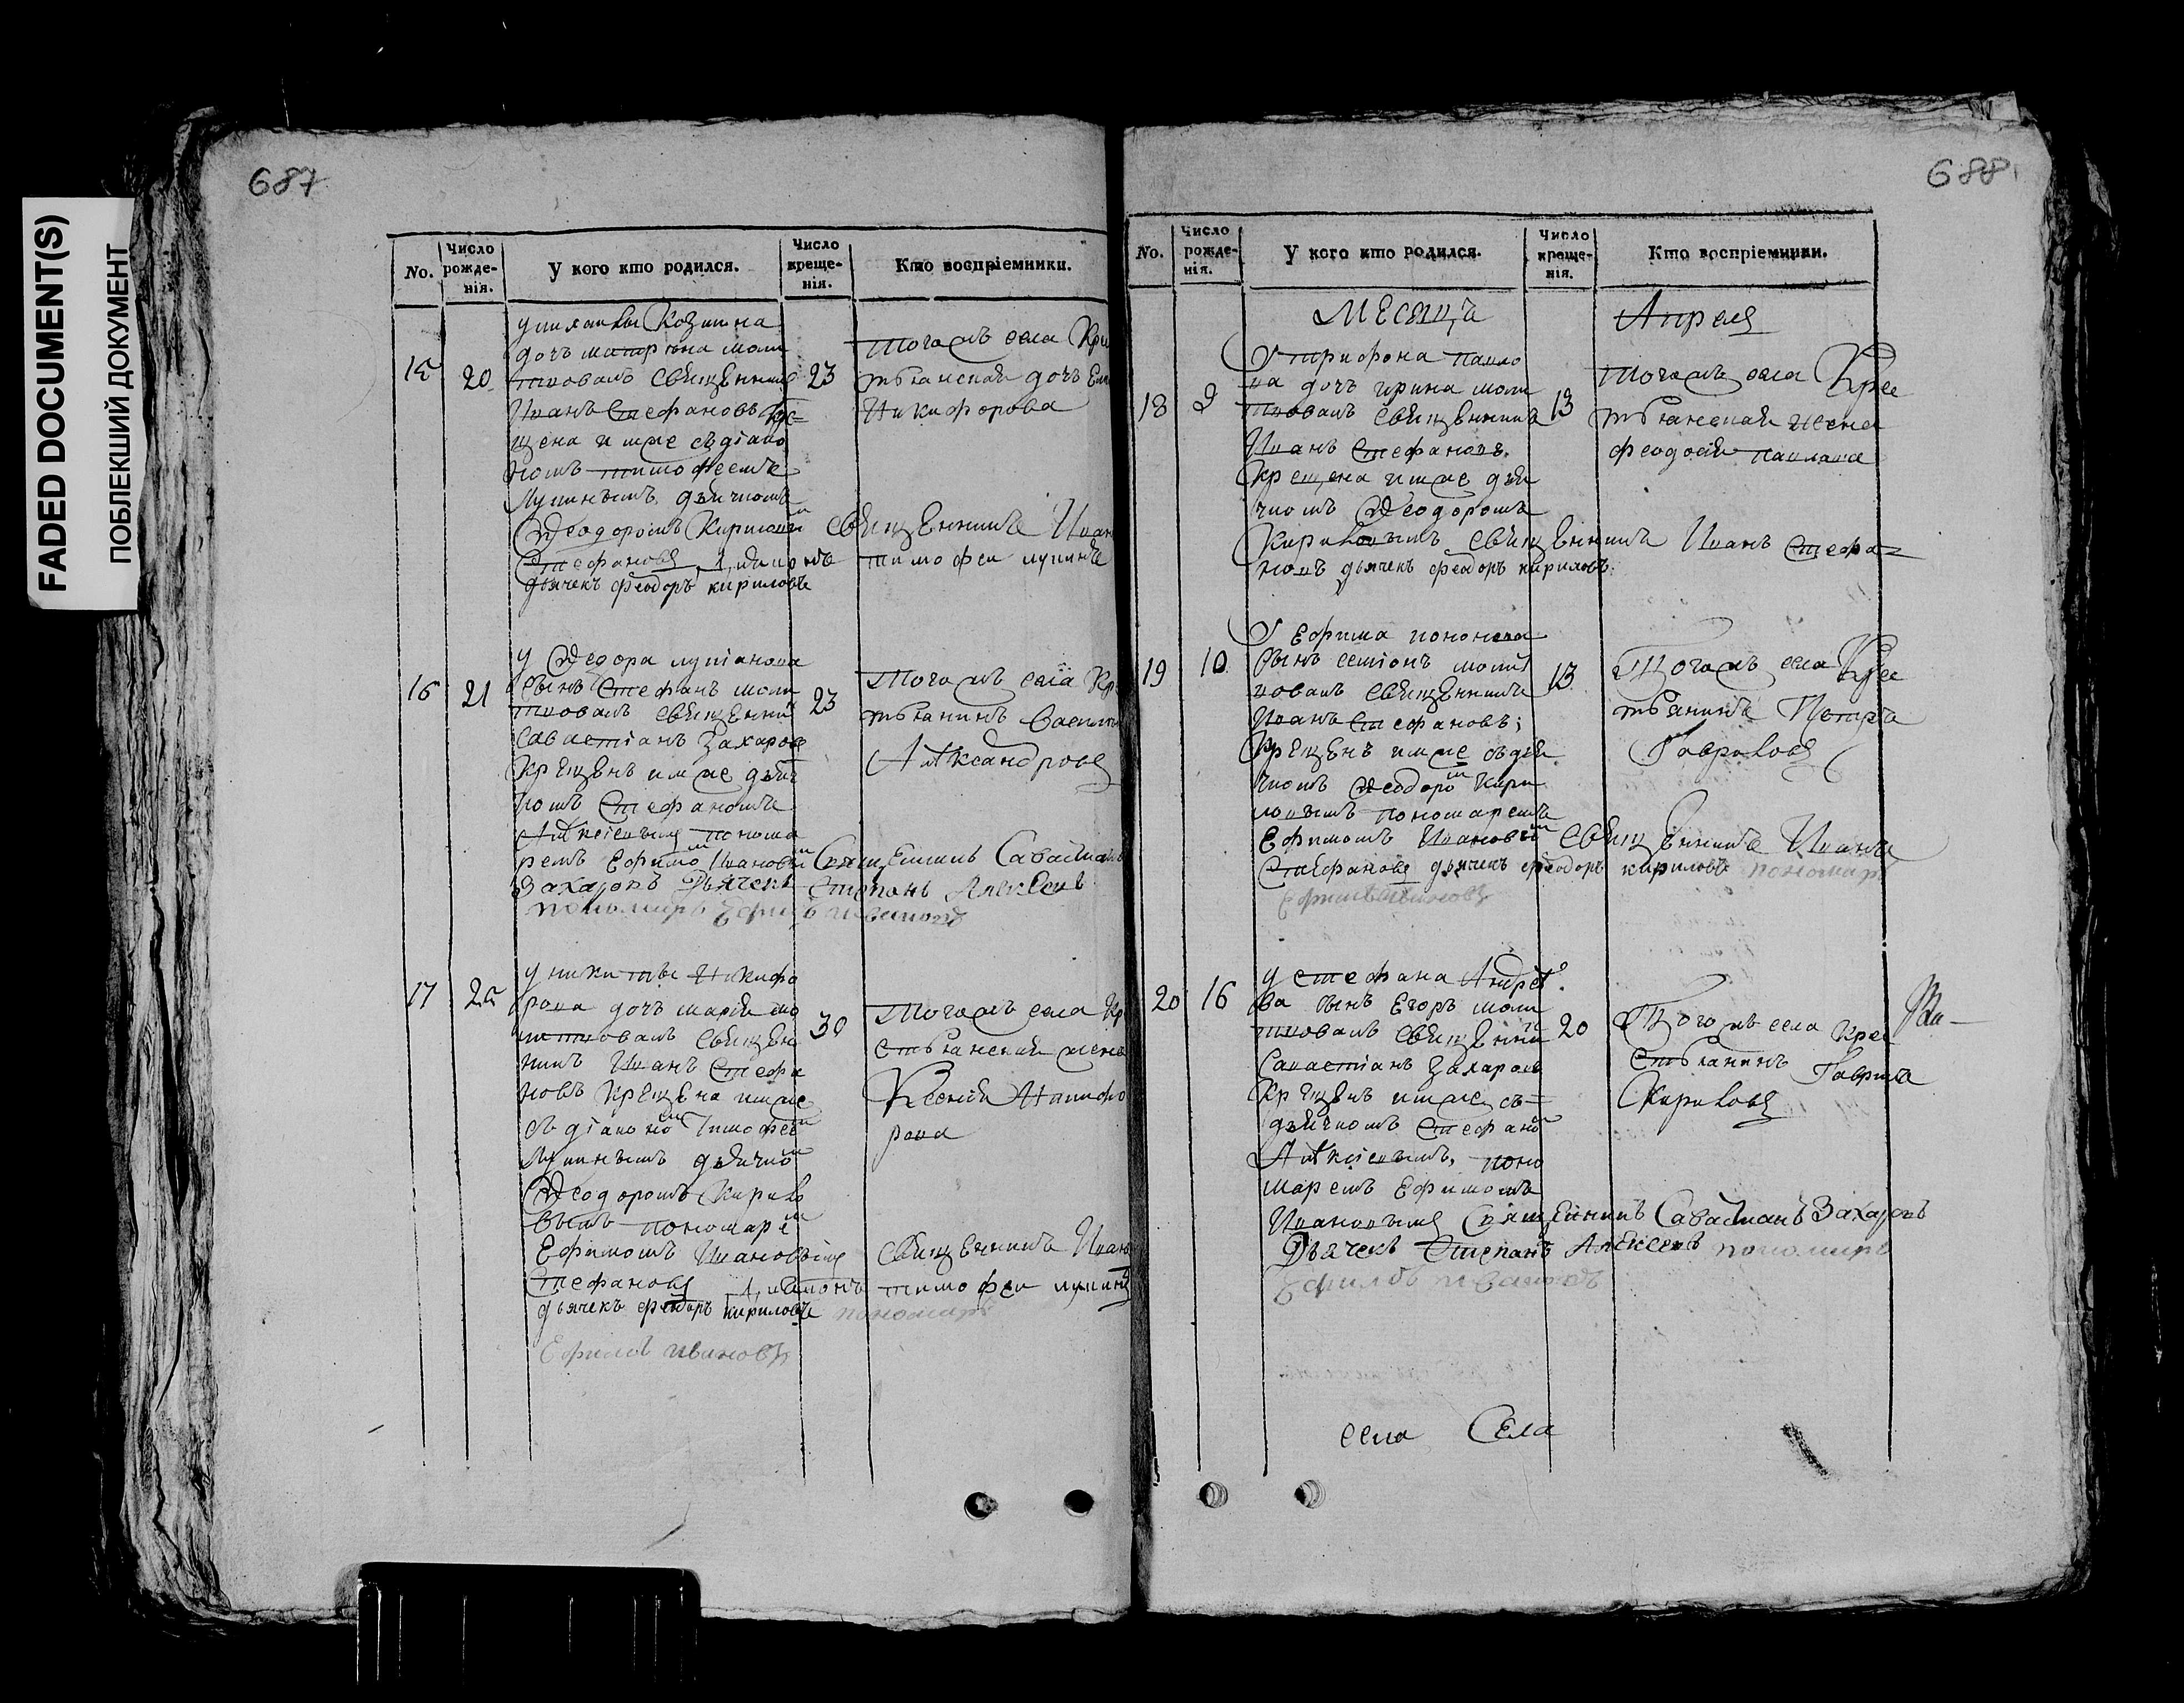 FADED DOCUMENT(S)
ПОБЛЕКШИЙ ДОКУМЕНТ
687
No.
Число рожде-нія.
У кого кто родился.
Число креще-нія.
Кто воспріемники.
15
20
дочь матрѣна моли
твовалъ священникъ
Иванъ Стефановъ кре=
щена имже съ діако
номъ тимофеемъ
Лупинымъ дьячкомъ
Феодоромъ
Стефановъ
дьячекъ феодоръ кириловъ
23
тогожъ села
дочь
Никифорова
священникъ Иван
тимофеи лупинъ
16
21
у Федора лупіанова
сынъ Стефанъ моли
твовалъ священни
савастіанъ Захаровъ
крещенъ имже дьяч
комъ Стефаномъ
Алѣксіевымъ понома
ремъ Ефимомъ Ивановым Священникъ Савастианъ
Захаровъ Дьячекъ Степанъ Алексеевъ
пономарь Ефимъ Ивановъ
23
тогожъ села Кр
тьянинъ Васили
Алѣксандровъ
17
25
у никиты Никифо
рова дочь марія мо
литвовалъ священ
никъ Иванъ Стефа
новъ крещена имже
съ діакономъ Тимофеем
Лупинымъ дьячком
Феодоромъ Кирило
вымъ пономарем
Ефимомъ Ивановымъ
Стефановъ Діаконъ тимофеи лупинъ
дьячекъ феодоръ кириловъ пономарь
Ефимъ Ивановъ
30
тогожъ села Кр
стьянская жена
Ксенія Никифо
рова
священникъ Иванъ
688
No.
Число рожде-нія.
У кого кто родился.
Число креще-нія.
Кто воспріемники.
Месяца Апреля
18
9
У трифона павло
ва дочь ирина моли
твовалъ священникъ
Иванъ Стефановъ.
Крещена имже дья
чкомъ Феодоромъ
Кириловымъ священникъ Иванъ Стефа=
новъ дьячекъ феодоръ кириловъ.
13
тогожъ села Крес
тьянская жена
феодосія павлова
19
10
У Ефима
сынъ семіонъ молит
вовалъ священникъ
Иванъ Стефановъ;
Крещенъ имже съ дья
чкомъ Феодоромъ Кири
ловымъ пономаремъ
Ефимомъ Ивановым священникъ Иванъ
Стефановъ дьячекъ феодоръ кириловъ пономарь
Ефимъ Ивановъ
13
Тогожъ села Крес
тьянинъ Петръ
Гавриловъ
20
16
у стефана Андрѣе
ва сынъ Егоръ моли
твовалъ священни
Савастіанъ Захаровъ
Крещенъ имже съ=
дьячкомъ Стефаном
Алѣксіевымъ, поно
маремъ Ефимомъ
Ивановымъ Священникъ Савастианъ Захаровъ
Дьячекъ Степанъ Алексеевъ пономарь
Ефимъ Ивановъ
20
Тогожъ села Крес
стьянинъ Гаврила
Кириловъ
села Села